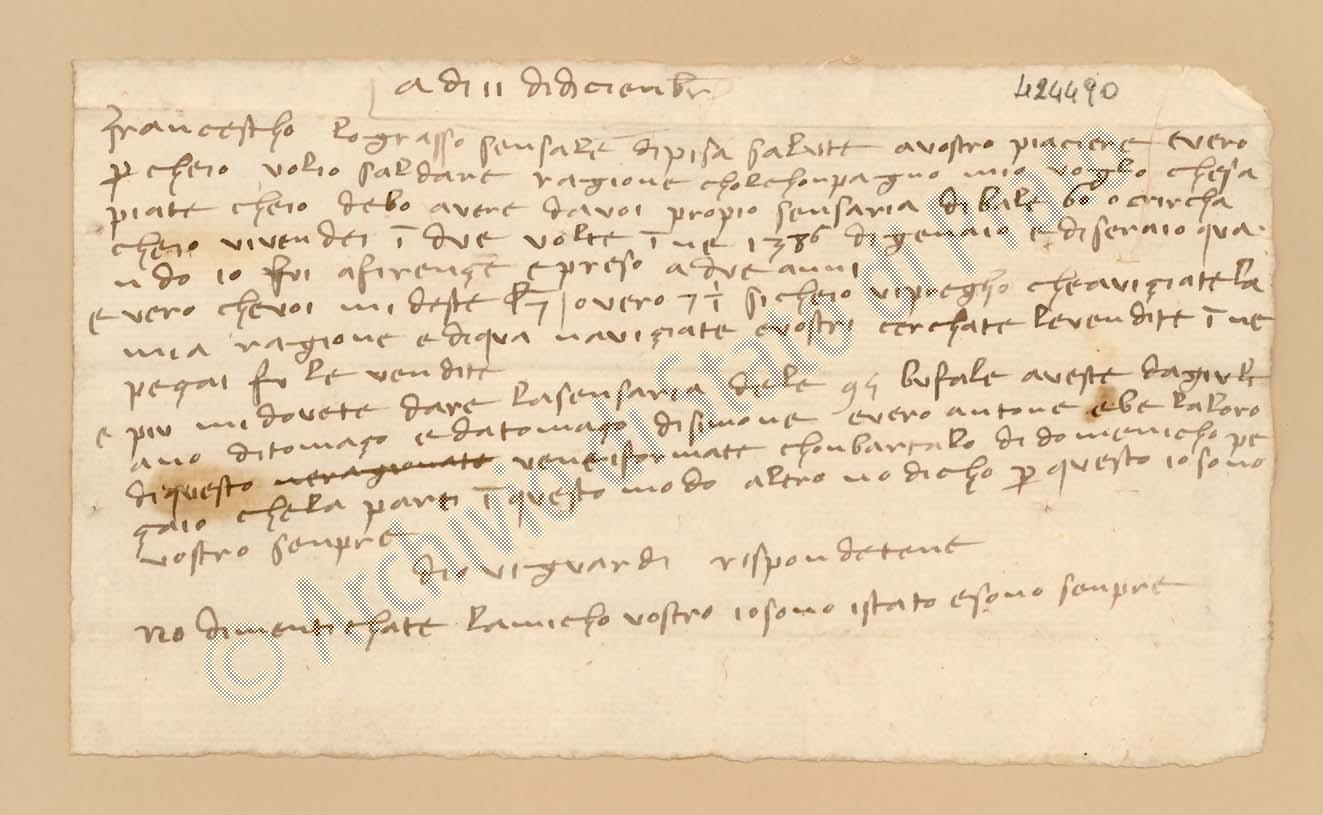 a di 11 di dicienbr
424490
francescho lo grasso sensale di pisa salute a vostro piaciere e vero
p cheio volio saldare ragione chol chonpagno mio voglo che sa
piate cheio debo avere da voi propio sensaria di bale 60 o circha
cheio vivendei ī due volte ī ne 1386 di genaio e di feraio qua
ndo io fui a firençe e preso a due anni
e vero che voi mi deste overo si cheio vi preghο che aviziate la
mia ragione e di qua naviziate e vostri cerchate le vendite ī ne
pegai fu le vendite
e piu mi dovete dare la sensaria dele 95 bufale aveste da giuli
ano di tomaço e da tomaço di simone e vero antone ebe la loro
di questo ne ragionate vene isformate chon bartalo di domenicho pe
çaio che la parti ī questo modo altro no dicho p questo io sono
vostro senpre
dio vi guardi rispondetene
no dimentichate lamicho vostro io sono istato e sono senpre
© Archivio di Stato di Prato